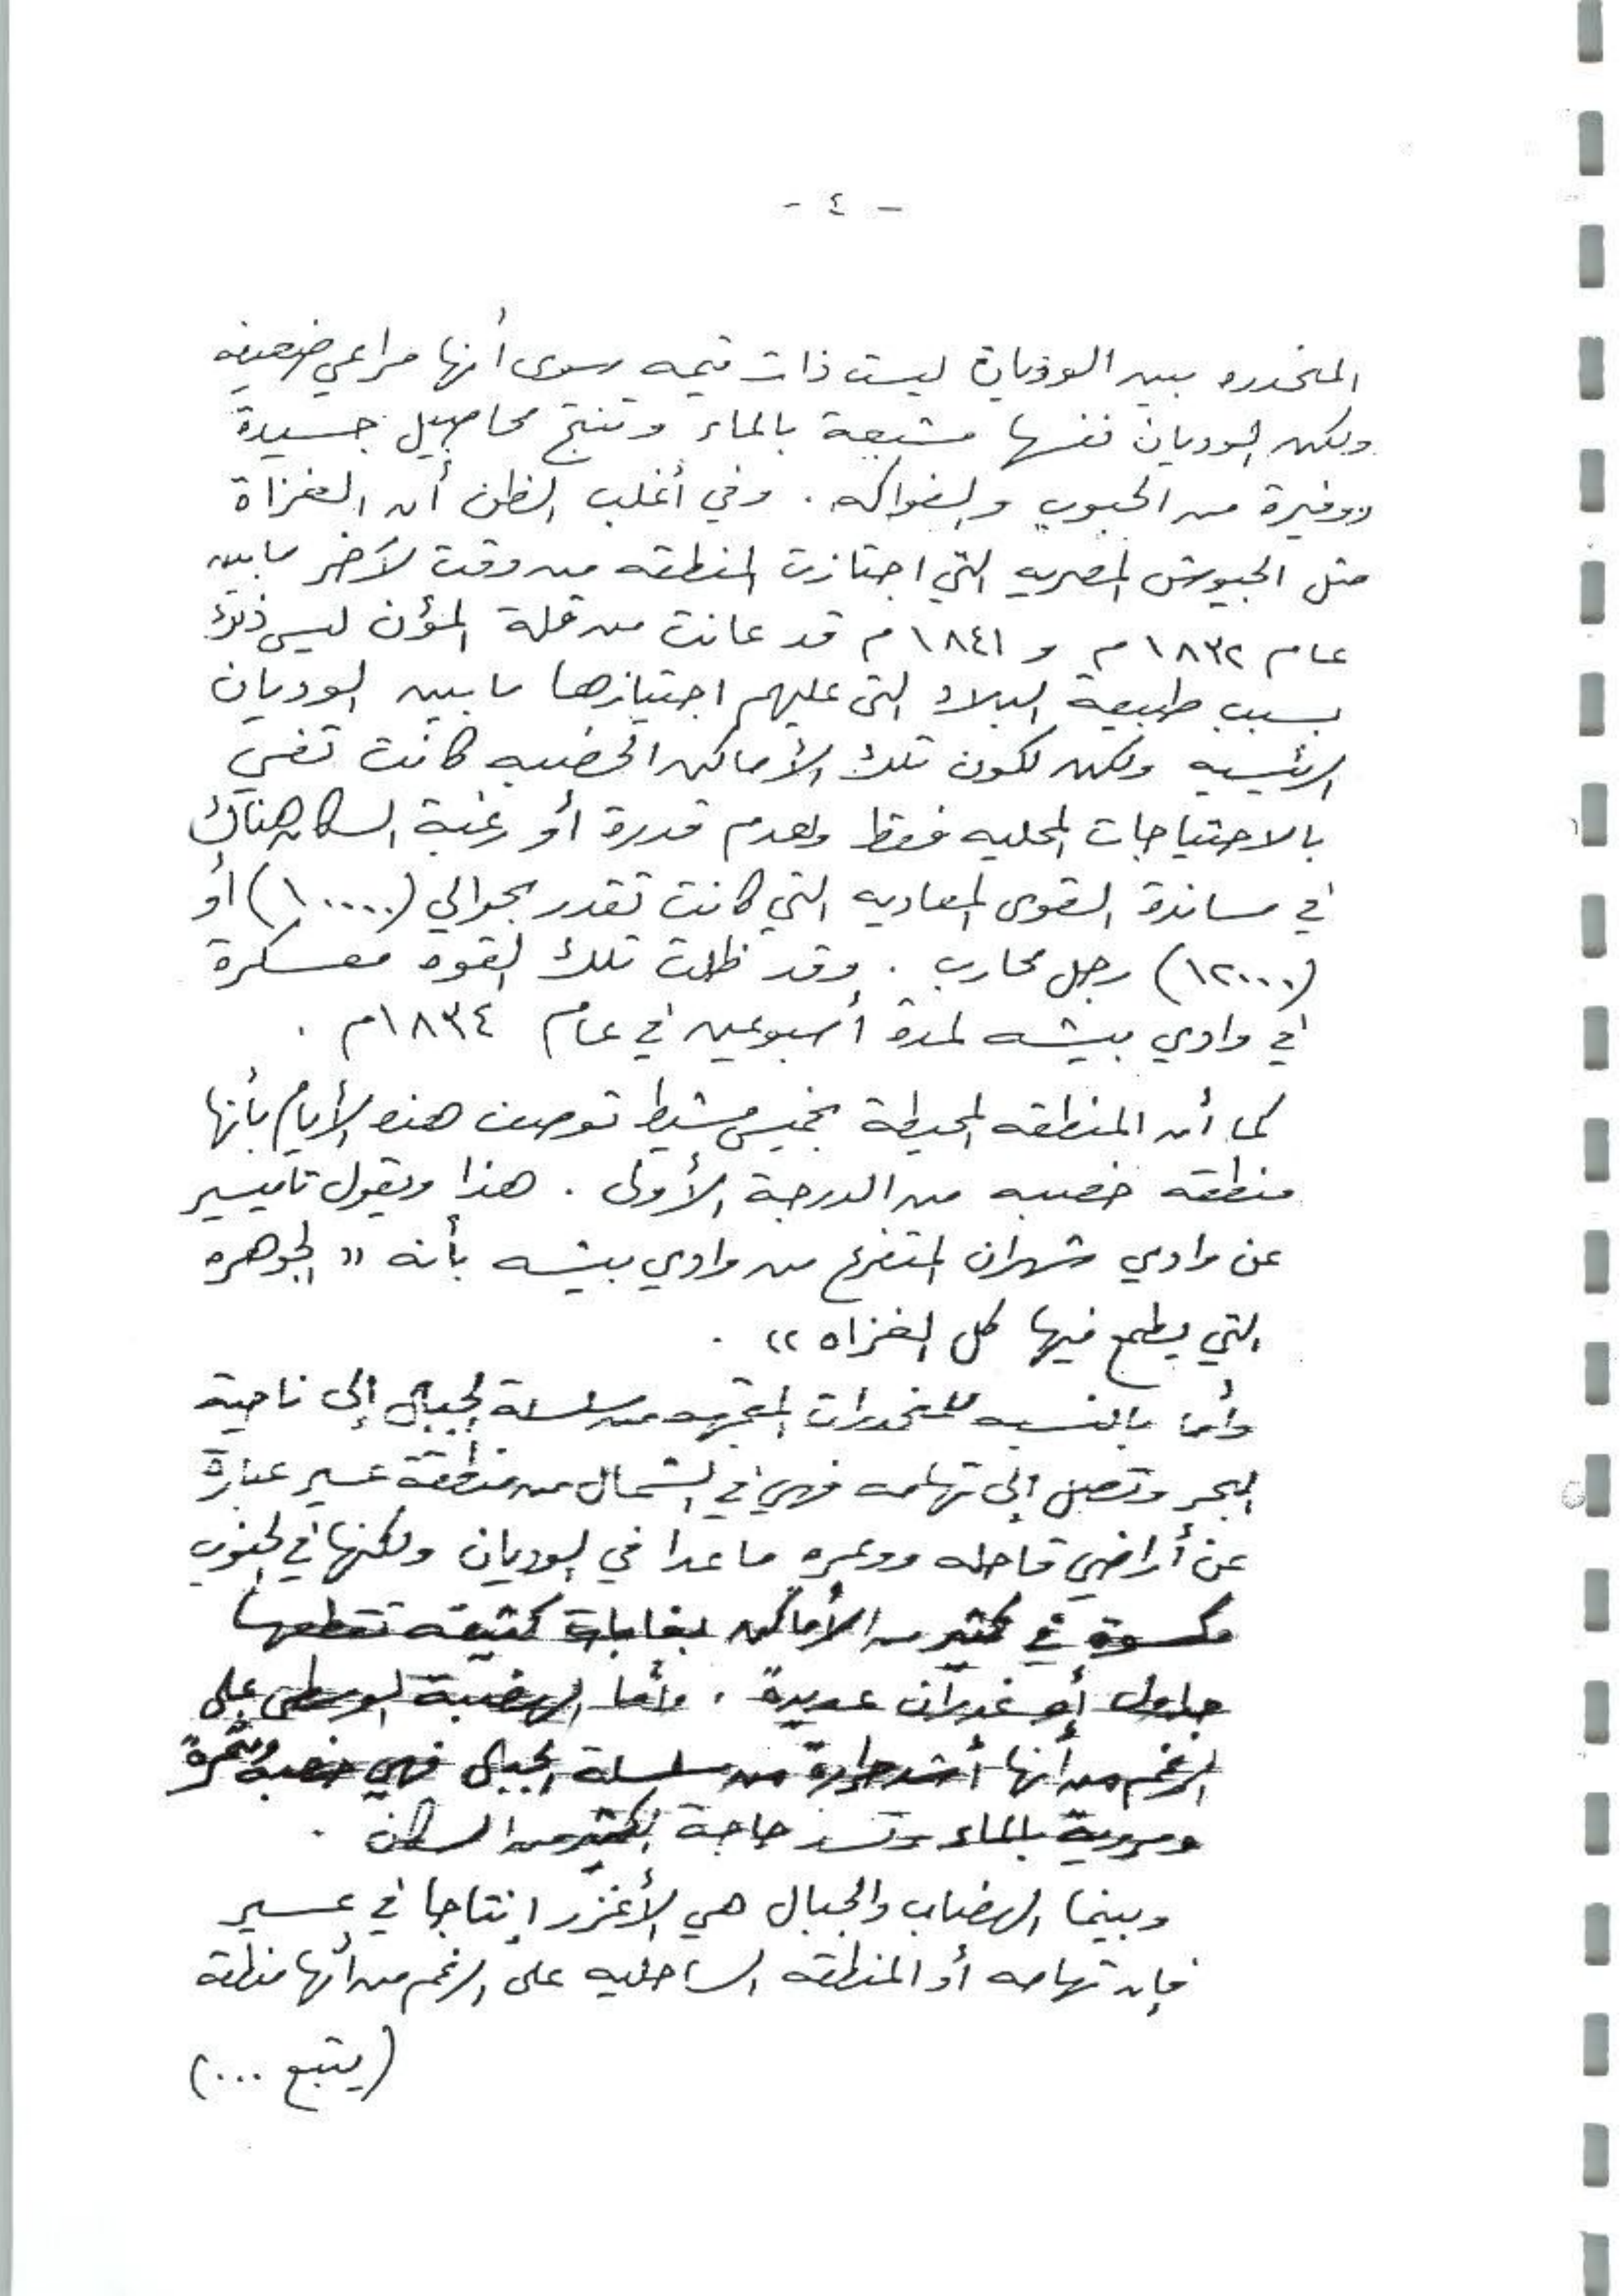 - ٤ -
المنحدره بين الوديان ليست ذات قيمه سوى أنها مراعي ضعيفه
ولكن الوديان نفسها مشبعة بالماء وتنتج محاصيل جيدة
ووفيرة من الحبوب والفواكه . وفي أغلب الظن أن الغزاة
مثل الجيوش المصريه التي اجتازت المنطقه من وقت لآخر مابين
عام ١٨٣٢م و ١٨٤١م قد عانت من قلة المؤن ليس ذلك
بسبب طبيعة البلاد التي عليهم اجتيازها مابين الوديان
الرئيسيه ولكن لكون تلك الأماكن الخصبه كانت تفي
بالاحتياجات المحليه فقط ولعدم قدرة أو رغبة السكان هناك
في مساندة القوى المعاديه التي كانت تقدر بحوالي (١٠٠٠٠) أو
(١٢٠٠٠) رجل محارب . وقد ظلت تلك القوه معسكرة
في وادي بيشه لمدة أسبوعين في عام ١٨٣٤م .
كما أن المنطقه المحيطة بخميس مشيط توصف هذه الأيام بأنها
منطقه خصبه من الدرجة الأولى . هذا ويقول تاميسير
عن وادي شهران المتفرع من وادي بيشه بأنه « الجوهره
التي يطمع فيها كل الغزاه » .
وأما بالنسبه للمنحدرات المتجهه من سلسلة الجبال إلى ناحية
البحر وتصل إلى تهامه فهي في الشمال من منطقة عسير عبارة
عن أراضي قاحله ووعره ماعدا في الوديان ولكنها في الجنوب
مكسوة في كثير من الأماكن بغابات كثيفه تقطعها
جداول أو غدران عديدة . وأما الهضبة الوسطى على
الرغم من أنها أشد حرارة من سلسلة الجبال فهي خصبة ومثمرة
ومروية بالماء وتسد حاجة الكثير من السكان .
وبينما الهضاب والجبال هي الأغزر إنتاجا في عسير
فإن تهامه أو المنطقه الساحليه على الرغم من أنها منطقة
(يتبع ...)